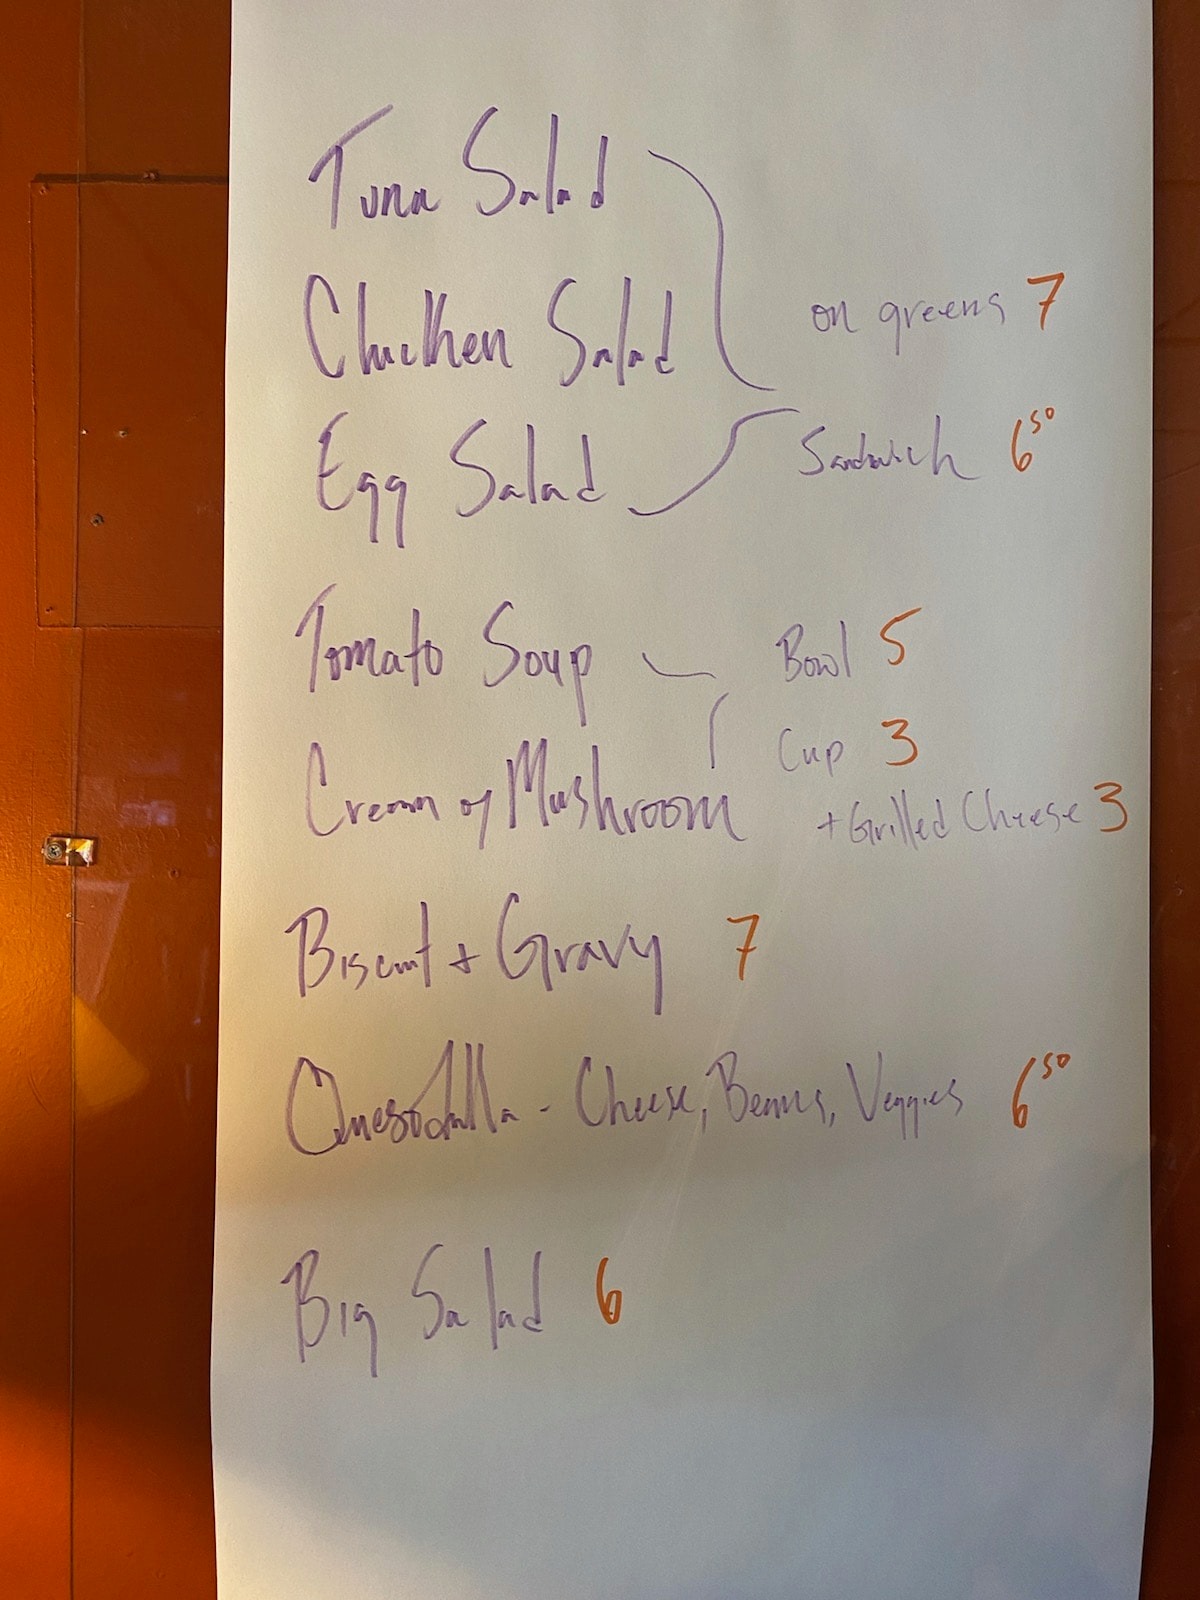 Tuna Salad
Chicken Salad
on greens 7
Egg Salad
Sandwich 6 50
Tomato Soup
Bowl 5
Cup 3
Cream of Mushroom
+ Grilled Cheese 3
Biscuit + Gravy 7
Quesadilla - Cheese, Beans, Veggies 6 50
Big Salad 6